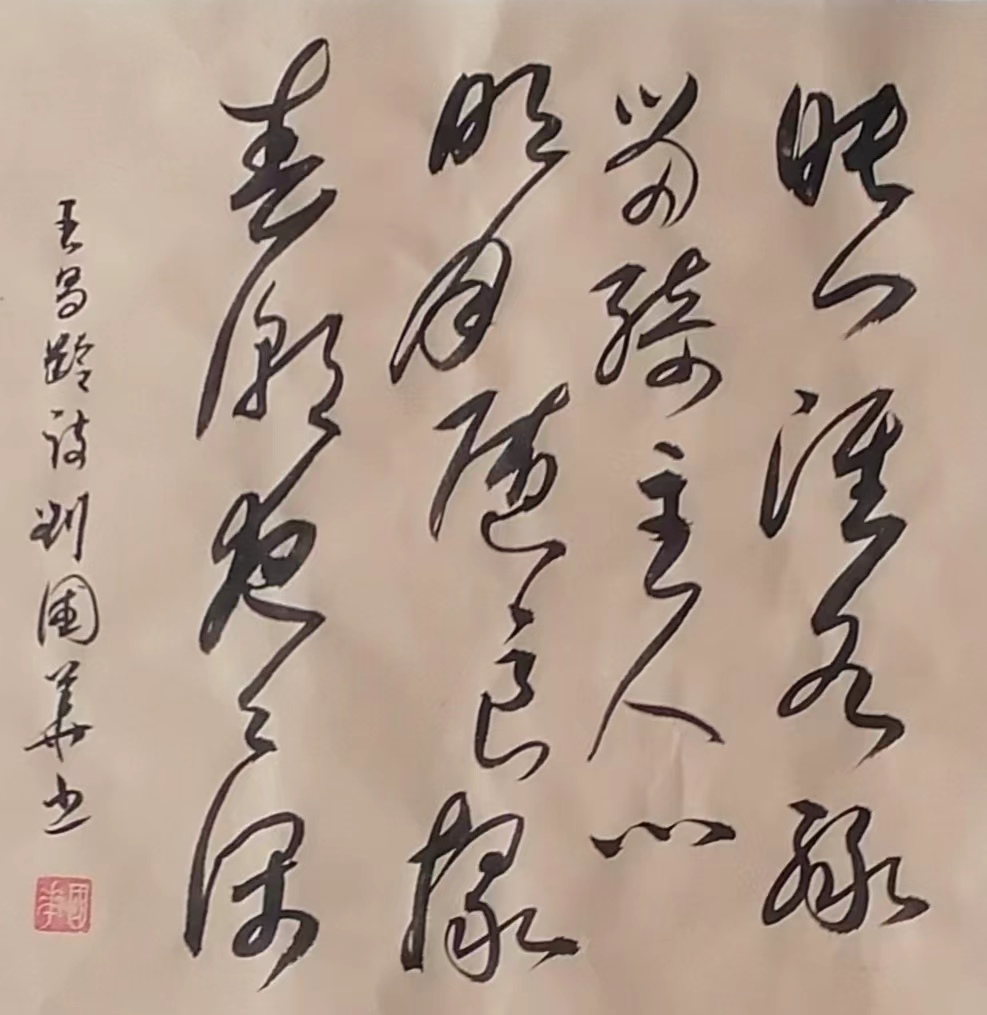 映门淮水绿
留骑主人心
明月随良掾
春潮夜々深
王昌齡诗刘國華书
國華